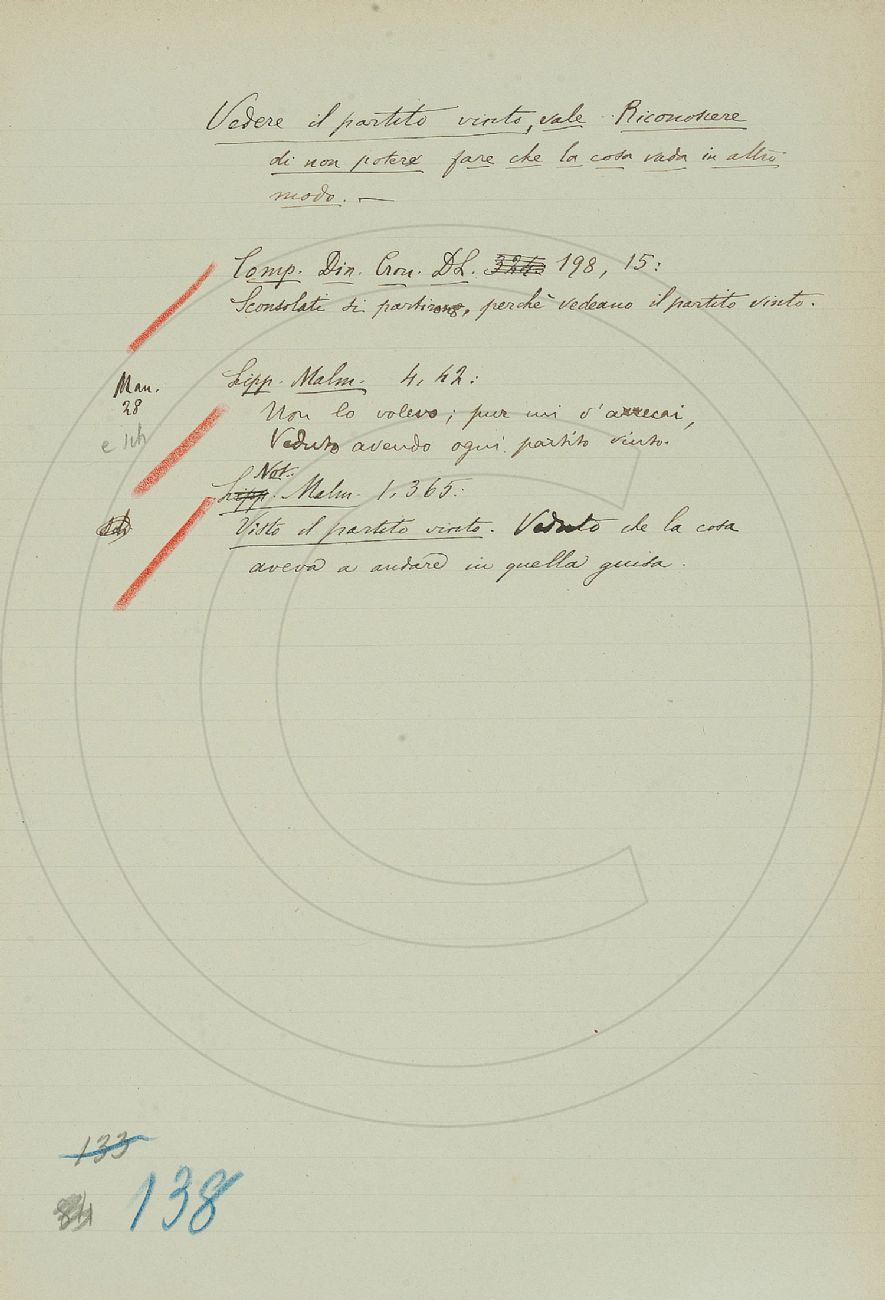 Vedere il partito vinto, vale Riconoscere
di non potere fare che la cosa vada in altro
modo. —
Comp. Din. Cron. DL. 198, 15:
Sconsolati si partirono, perchè vedeano il partito vinto.
Man.
28
Lipp. Malm. 4, 42:
Non lo volevo; pur mi v'arrecai,
Veduto avendo ogni partito vinto.
Not.
Lipp. Malm. 1, 365:
Visto il partito vinto. Veduto che la cosa
aveva a andare in quella guisa.
133
138